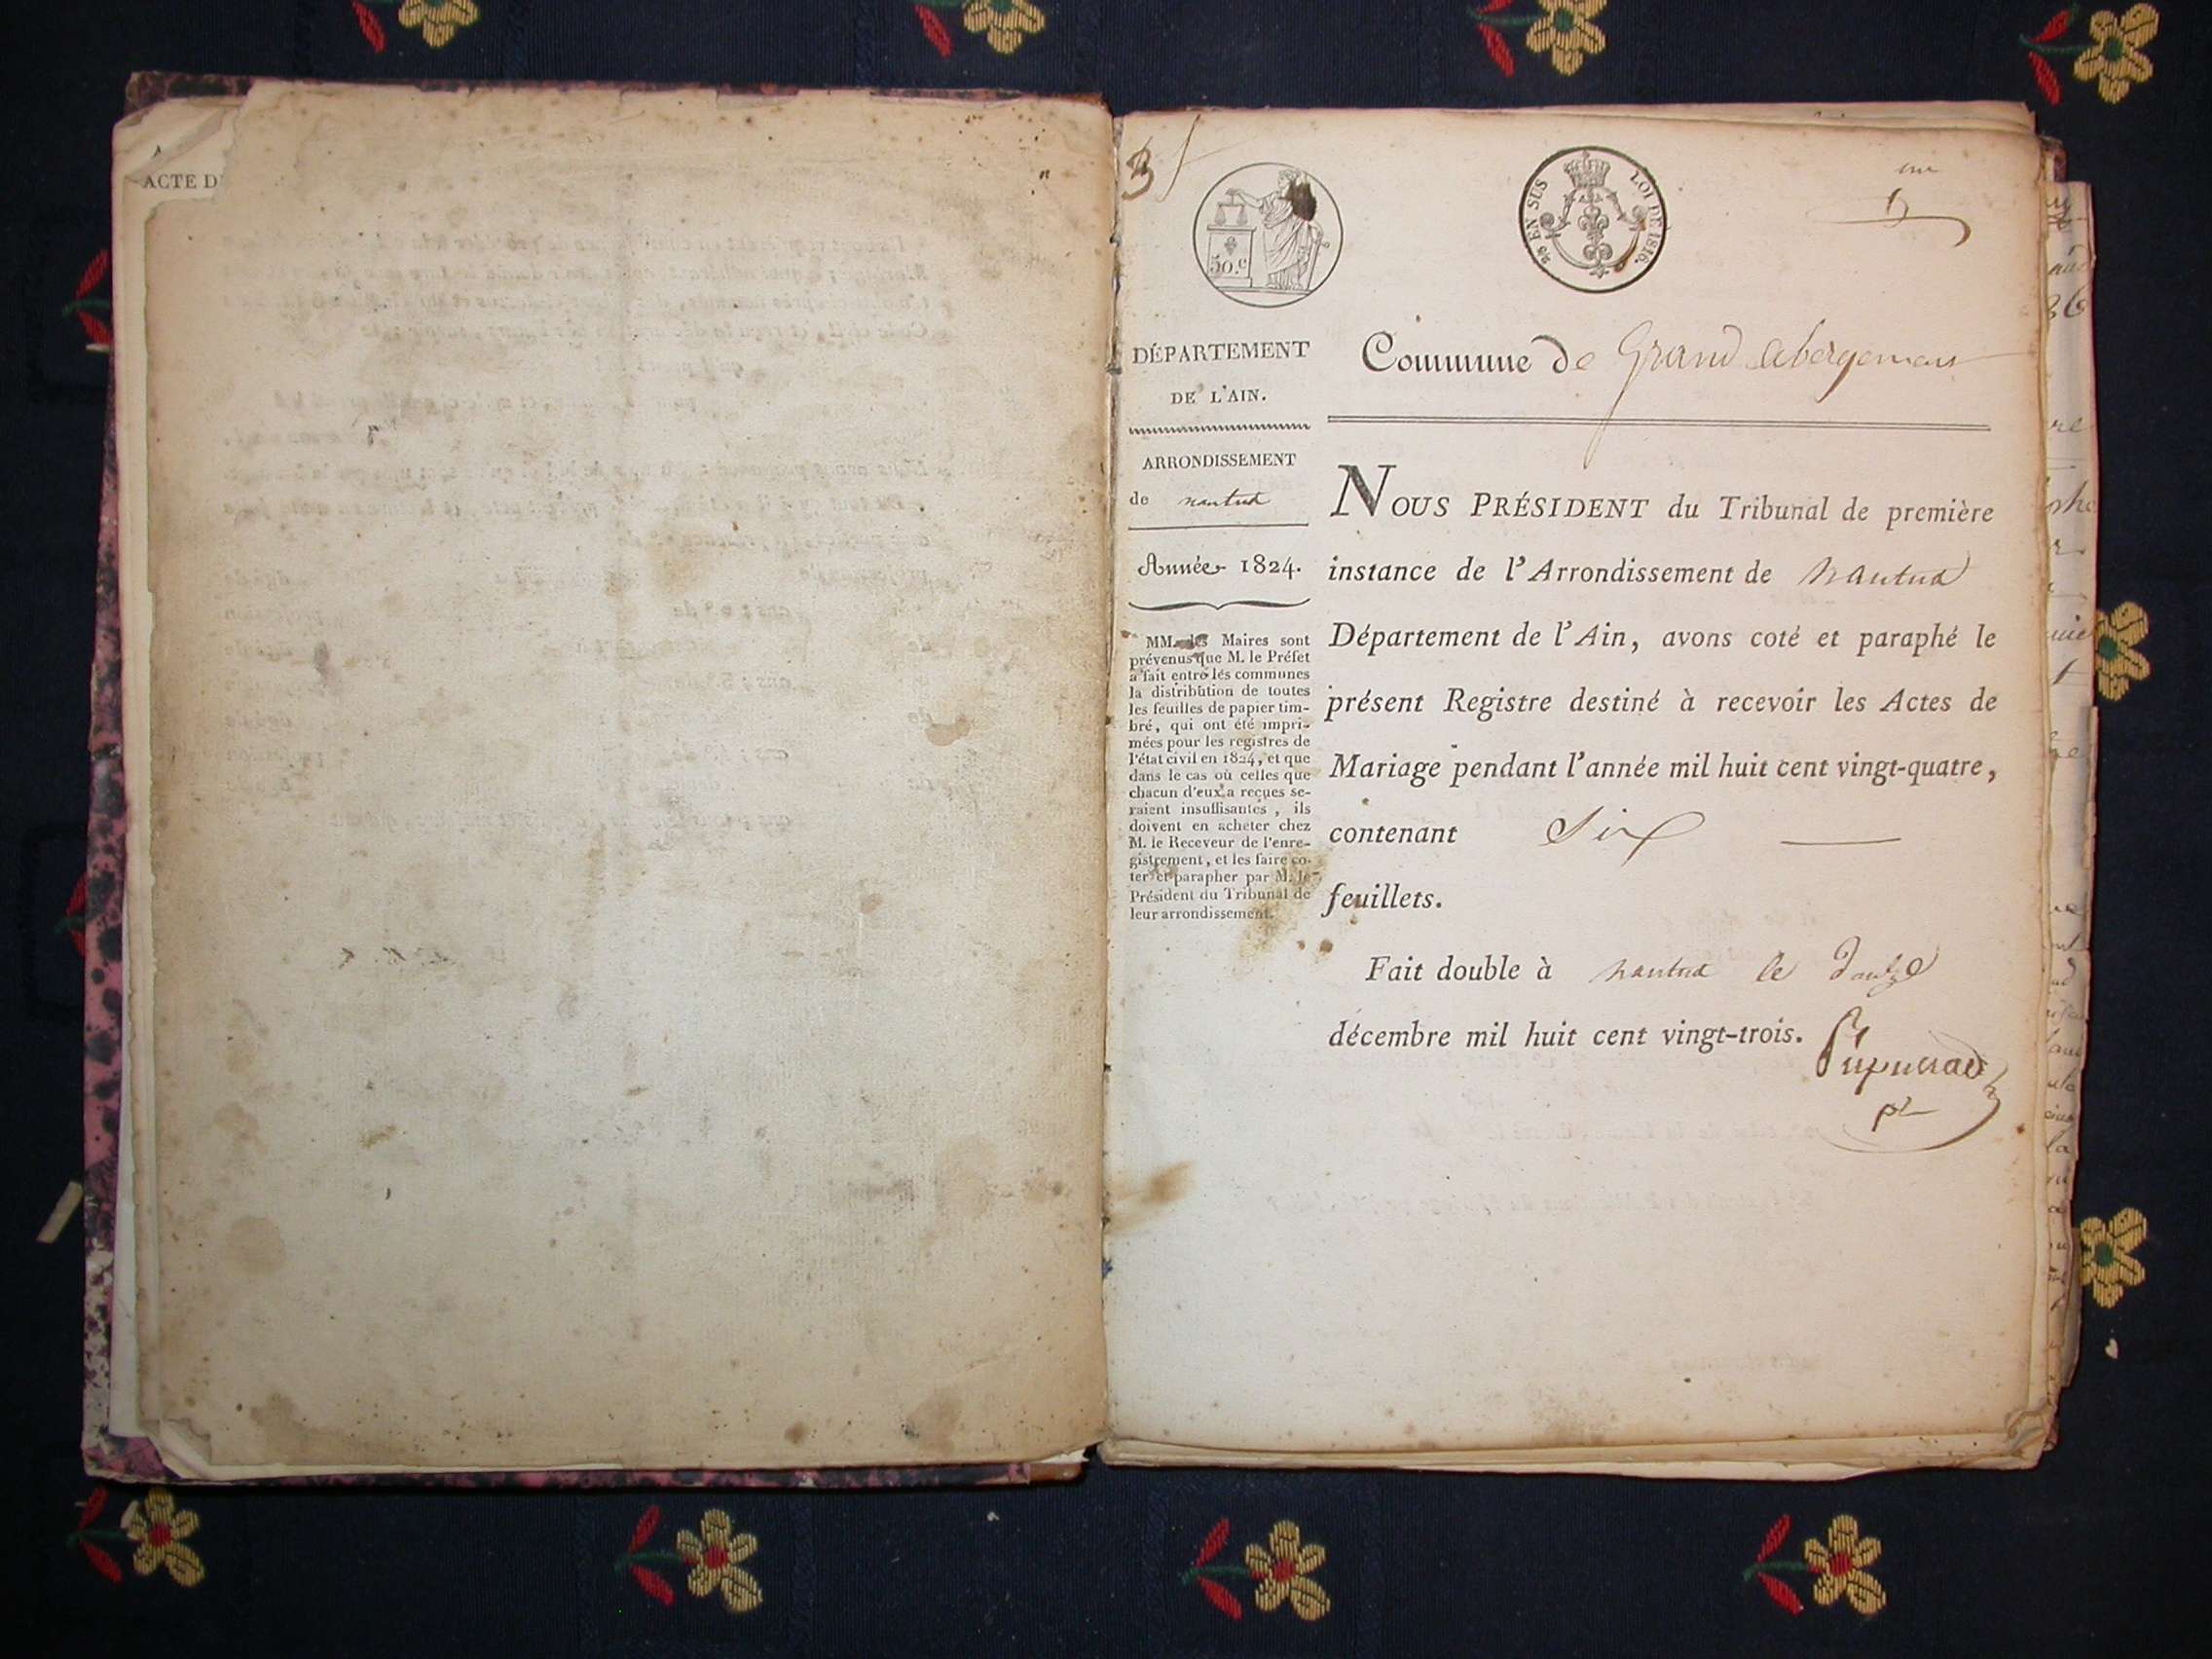 ACTE D
50.c
25 EN SUS
LOI DE 1816.
DÉPARTEMENT
DE L'AIN.
ARRONDISSEMENT
de nantua
Année 1824.
MM. les Maires sont
prévenus que M. le Préfet
a fait entre les communes
la distribution de toutes
les feuilles de papier tim-
bré, qui ont été impri-
mées pour les registres de
l'état civil en 1824, et que
dans le cas où celles que
chacun d'eux a reçues se-
raient insuffisantes, ils
doivent en acheter chez
M. le Receveur de l'enre-
gistrement, et les faire co-
ter et parapher par M. le
Président du Tribunal de
leur arrondissement.
Commune de Grand abergement
NOUS PRÉSIDENT du Tribunal de première
instance de l'Arrondissement de Nantua
Département de l'Ain, avons coté et paraphé le
présent Registre destiné à recevoir les Actes de
Mariage pendant l'année mil huit cent vingt-quatre,
contenant Six
feuillets.
Fait double à nantua le douze
décembre mil huit cent vingt-trois.